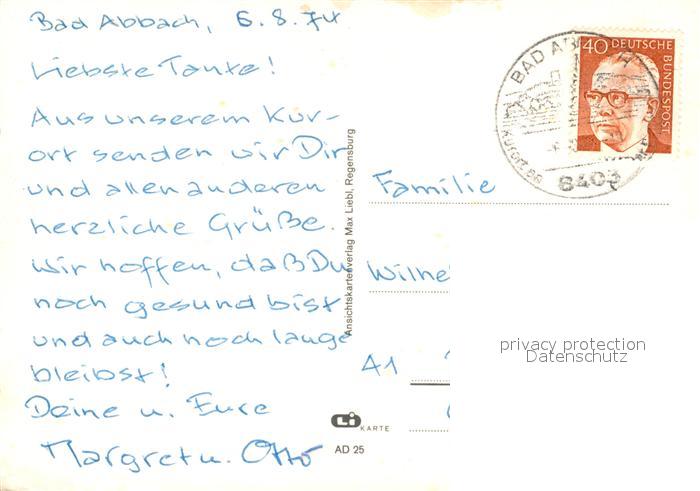 Bad Abbach, 6.8.74
Liebste Tante!
Aus unserem Kur-
ort senden wir Dir
und allen anderen
herzliche Grüße.
Wir hoffen, daß Du
noch gesund bist
und auch noch lange
bleibst!
Deine u. Eure
Margret u. Otto
Ansichtskartenverlag Max Liebl, Regensburg
Li
KARTE
AD 25
40 DEUTSCHE BUNDESPOST
BAD
8403
Familie
Wilhe
A1
privacy protection
Datenschutz